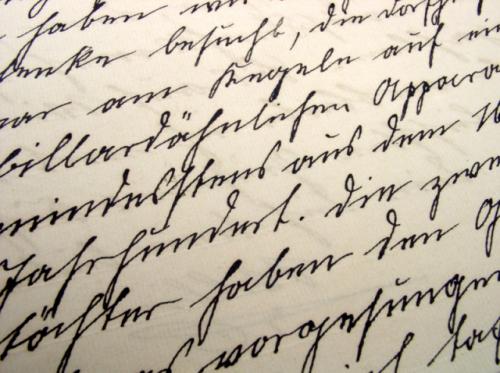 haben wir
besucht, die
war am Kegeln auf
billardähnlichen Appara
mindestens aus dem 16
Jahrhundert. Die zwe
töchter haben den
vorgesungen